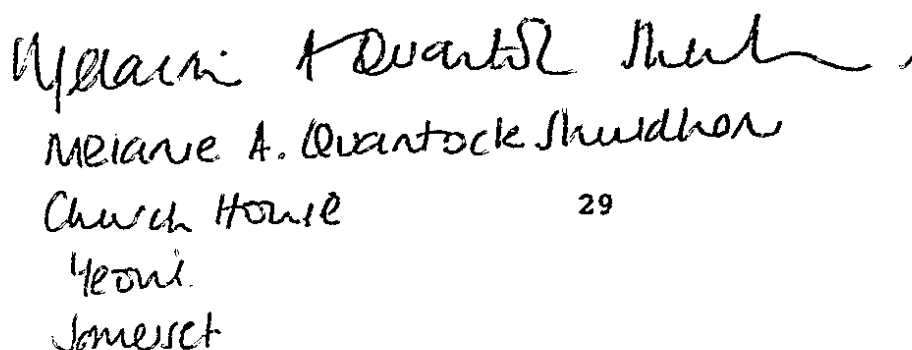 Melanie A Quantock
Melanie A. Quantock Shuldham
Church House 29
Yeovil
Somerset